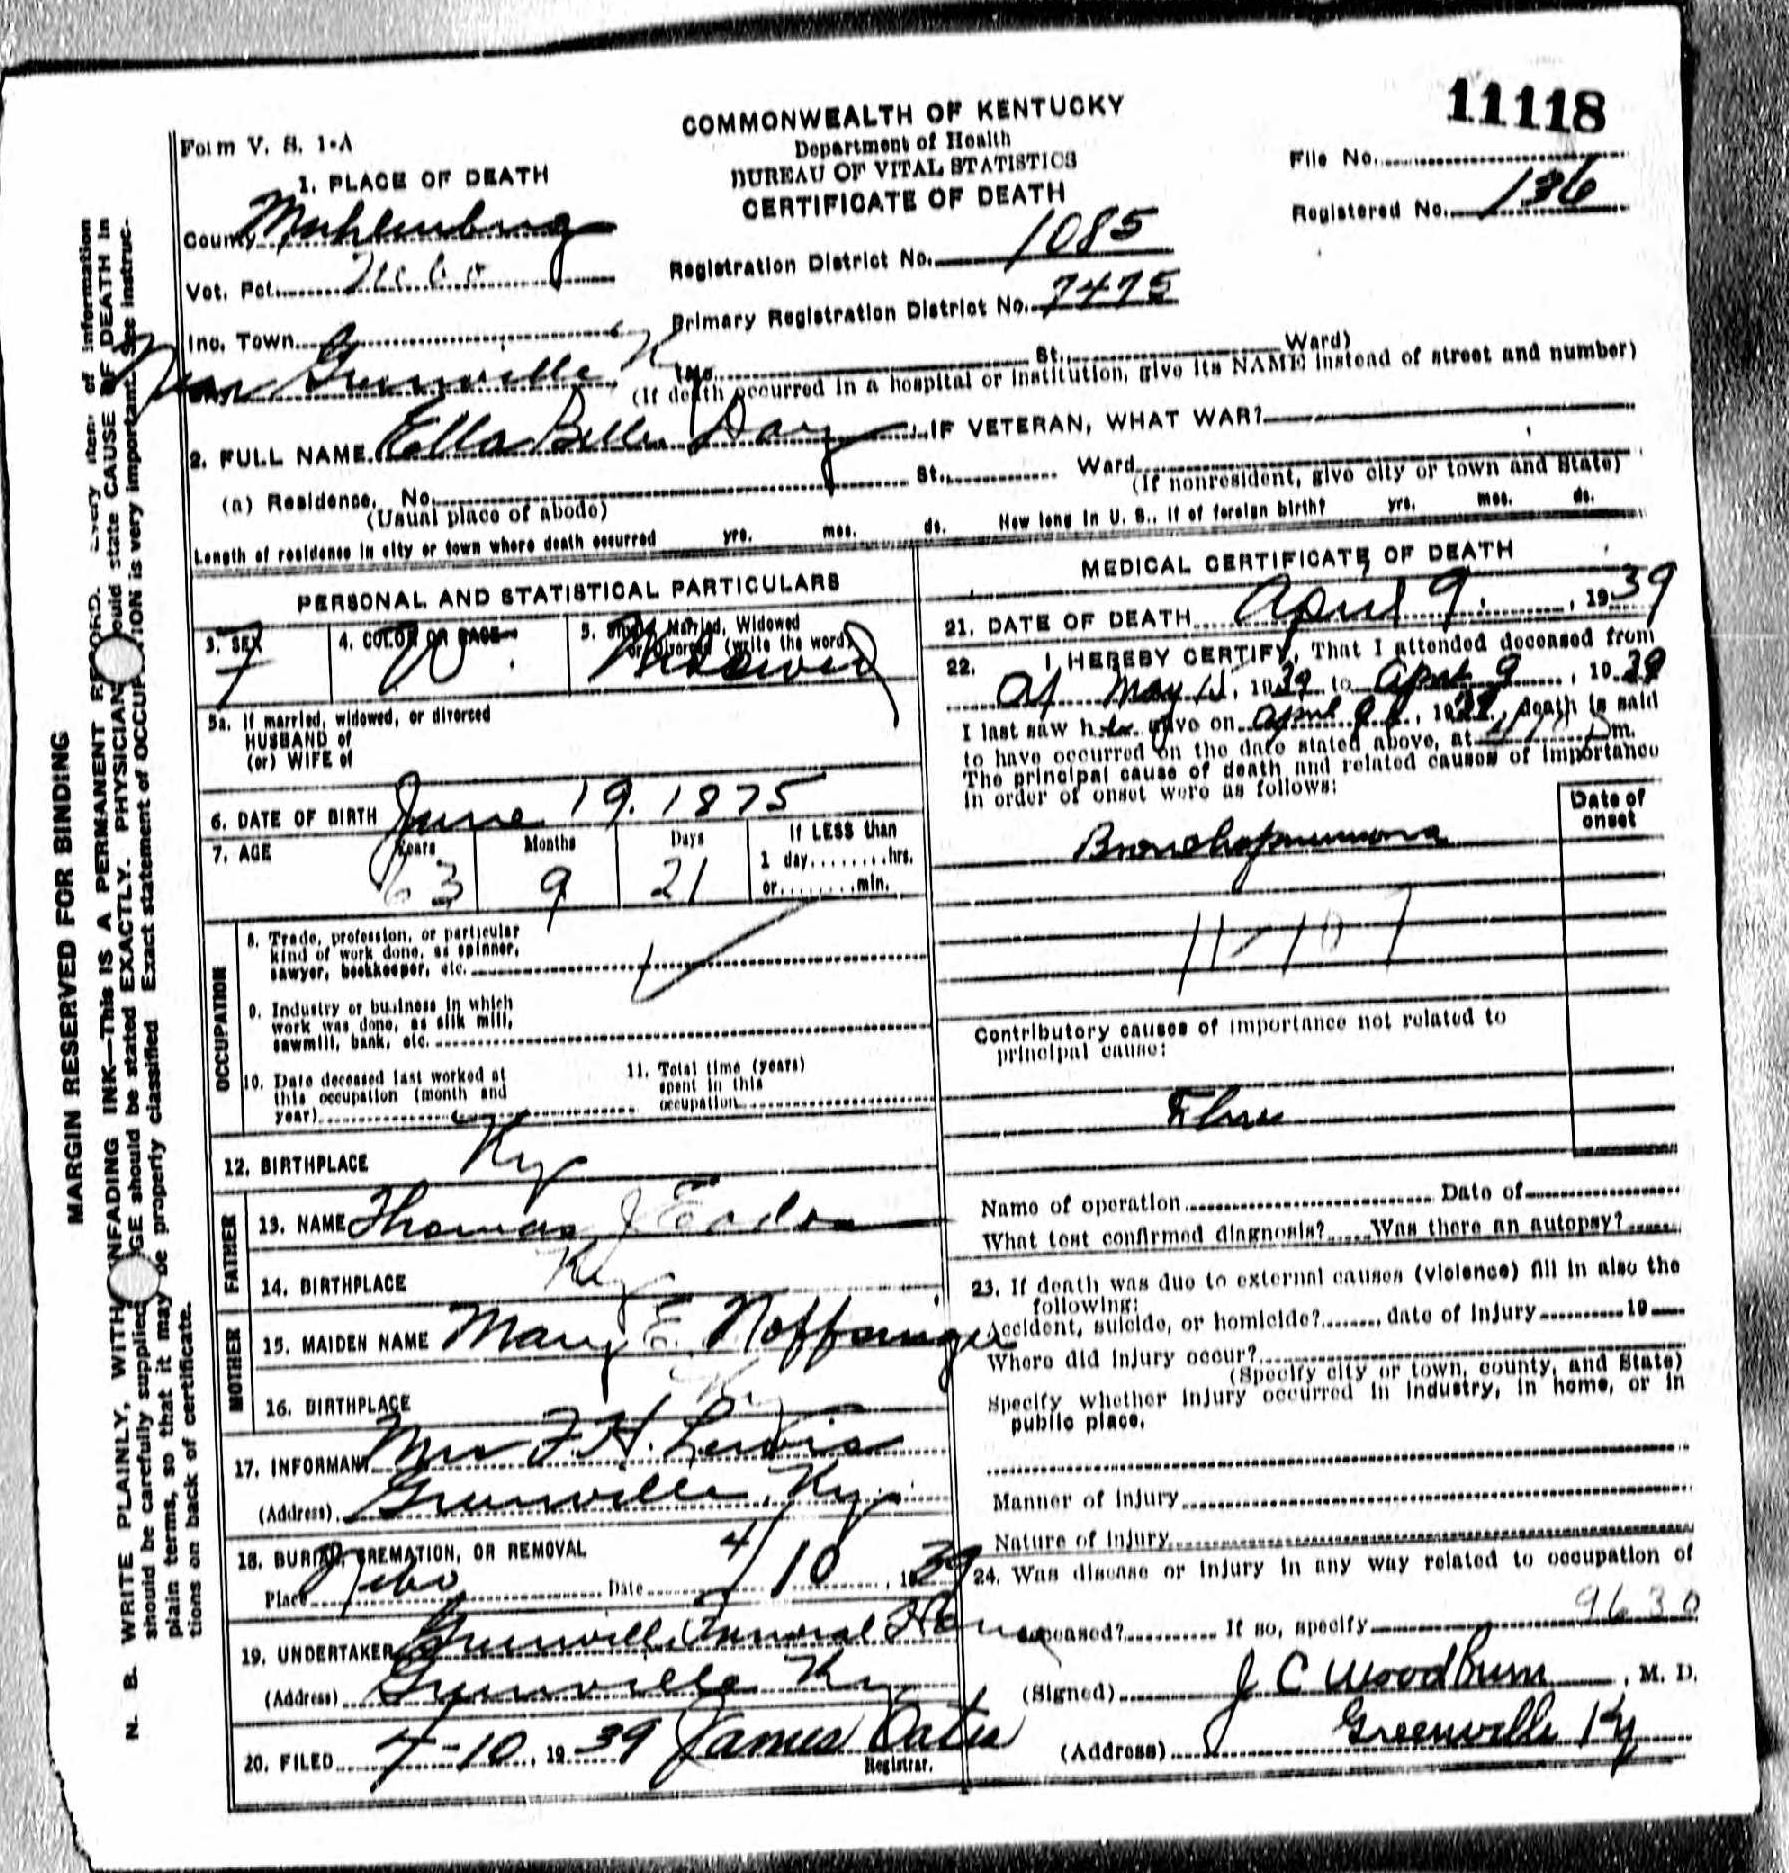 11118
COMMONWEALTH OF KENTUCKY
Form V. S. 1-A
Department of Health
File No.
1. PLACE OF DEATH
BUREAU OF VITAL STATISTICS
CERTIFICATE OF DEATH
Registered No. 136
County Muhlenburg
Registration District No. 1085
Vot. Pct.
Primary Registration District No. 7475
Inc. Town
Near Greenville, Ky
No. St., Ward)
(If death occurred in a hospital or institution, give its NAME instead of street and number)
2. FULL NAME Ella Belle Day IF VETERAN, WHAT WAR?
(a) Residence, No. St., Ward
(Usual place of abode) (If nonresident, give city or town and State)
Length of residence in city or town where death occurred yrs. mos. ds. How long in U. S., if of foreign birth? yrs. mos. ds.
PERSONAL AND STATISTICAL PARTICULARS
3. SEX F
4. COLOR OR RACE W
5. Single, Married, Widowed
or Divorced (write the word)
Widowed
5a. If married, widowed, or divorced
HUSBAND of
(or) WIFE of
6. DATE OF BIRTH June 19. 1875
7. AGE Years Months Days If LESS than
1 day........hrs.
63 9 21 or........min.
OCCUPATION
8. Trade, profession, or particular
kind of work done, as spinner,
sawyer, bookkeeper, etc.
9. Industry or business in which
work was done, as silk mill,
sawmill, bank, etc.
10. Date deceased last worked at
this occupation (month and
year)
11. Total time (years)
spent in this
occupation
12. BIRTHPLACE Ky
FATHER
13. NAME Thomas J
14. BIRTHPLACE Ky
MOTHER
15. MAIDEN NAME Mary E. Noffsinger
16. BIRTHPLACE Ky
17. INFORMANT Mrs F. H. Lewis
(Address) Greenville, Ky.
18. BURIAL, CREMATION, OR REMOVAL
Place Nebo Date 4/10, 1939
19. UNDERTAKER Greenville Funeral Home
(Address) Greenville Ky
20. FILED 4-10, 1939 James Oates
Registrar.
MEDICAL CERTIFICATE OF DEATH
21. DATE OF DEATH April 9, 1939
22. I HEREBY CERTIFY, That I attended deceased from
1939 to April 9, 1939
I last saw her alive on April 9, 1939, death is said
to have occurred on the date stated above, at m.
The principal cause of death and related causes of importance
in order of onset were as follows:
Date of
onset
Bronchopneumonia
Contributory causes of importance not related to
principal cause:
Name of operation Date of
What test confirmed diagnosis? Was there an autopsy?
23. If death was due to external causes (violence) fill in also the
following:
Accident, suicide, or homicide? date of injury 19
Where did injury occur?
(Specify city or town, county, and State)
Specify whether injury occurred in industry, in home, or in
public place.
Manner of injury
Nature of injury
24. Was disease or injury in any way related to occupation of
deceased? If so, specify 9630
(Signed) J C Woodburn, M. D.
(Address) Greenville Ky
MARGIN RESERVED FOR BINDING
N. B. WRITE PLAINLY, WITH UNFADING INK—THIS IS A PERMANENT RECORD. Every item of information
should be carefully supplied. AGE should be stated EXACTLY. PHYSICIANS should state CAUSE OF DEATH in
plain terms, so that it may be properly classified Exact statement of OCCUPATION is very important. See instruc-
tions on back of certificate.